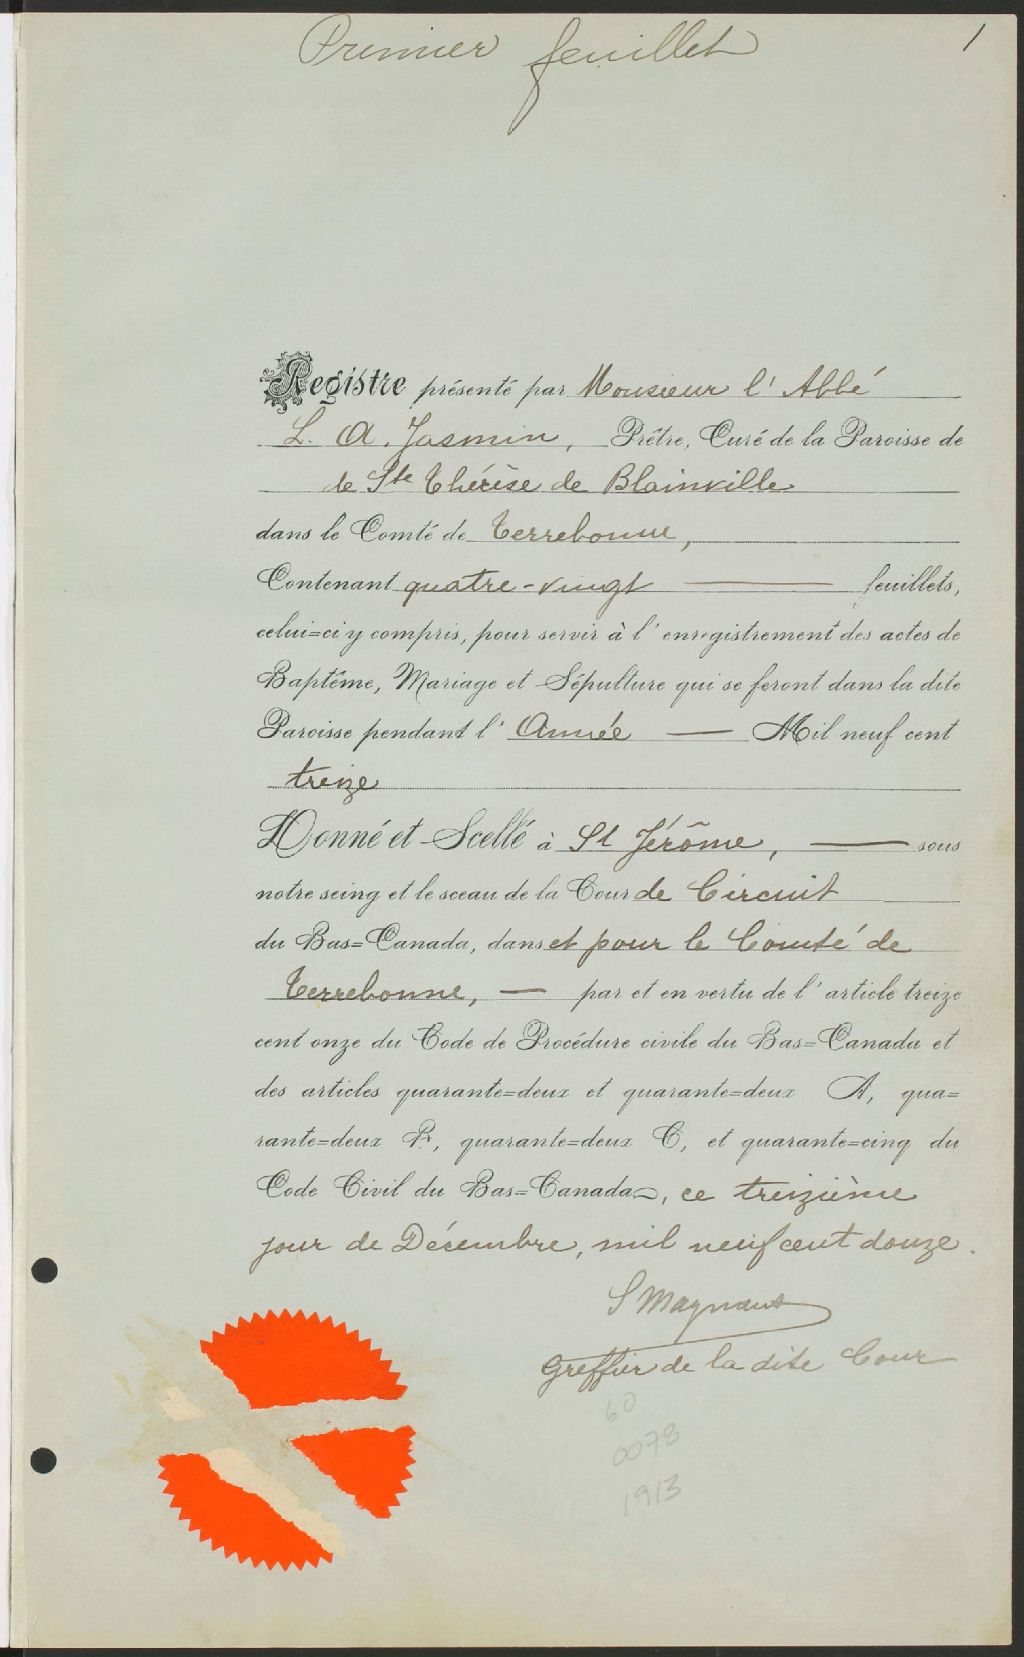 Premier feuillet
1
Registre présenté par Monsieur l'Abbé
L. A. Jasmin, Prêtre, Curé de la Paroisse de
de Ste Thérèse de Blainville
dans le Comté de Terrebonne,
Contenant quatre-vingt — feuillets,
celui=ci y compris, pour servir à l'enregistrement des actes de
Baptême, Mariage et Sépulture qui se feront dans la dite
Paroisse pendant l'Année — Mil neuf cent
treize
Donné et Scellé à St Jérôme, — sous
notre seing et le sceau de la Cour de Circuit
du Bas=Canada, dans et pour le Comté de
Terrebonne, — par et en vertu de l'article treize
cent onze du Code de Procédure civile du Bas=Canada et
des articles quarante=deux et quarante=deux A, qua=
rante=deux B, quarante=deux C, et quarante=cinq du
Code Civil du Bas=Canada, ce treizième
jour de Décembre, mil neuf cent douze.
Greffier de la dite Cour
60
0078
1913